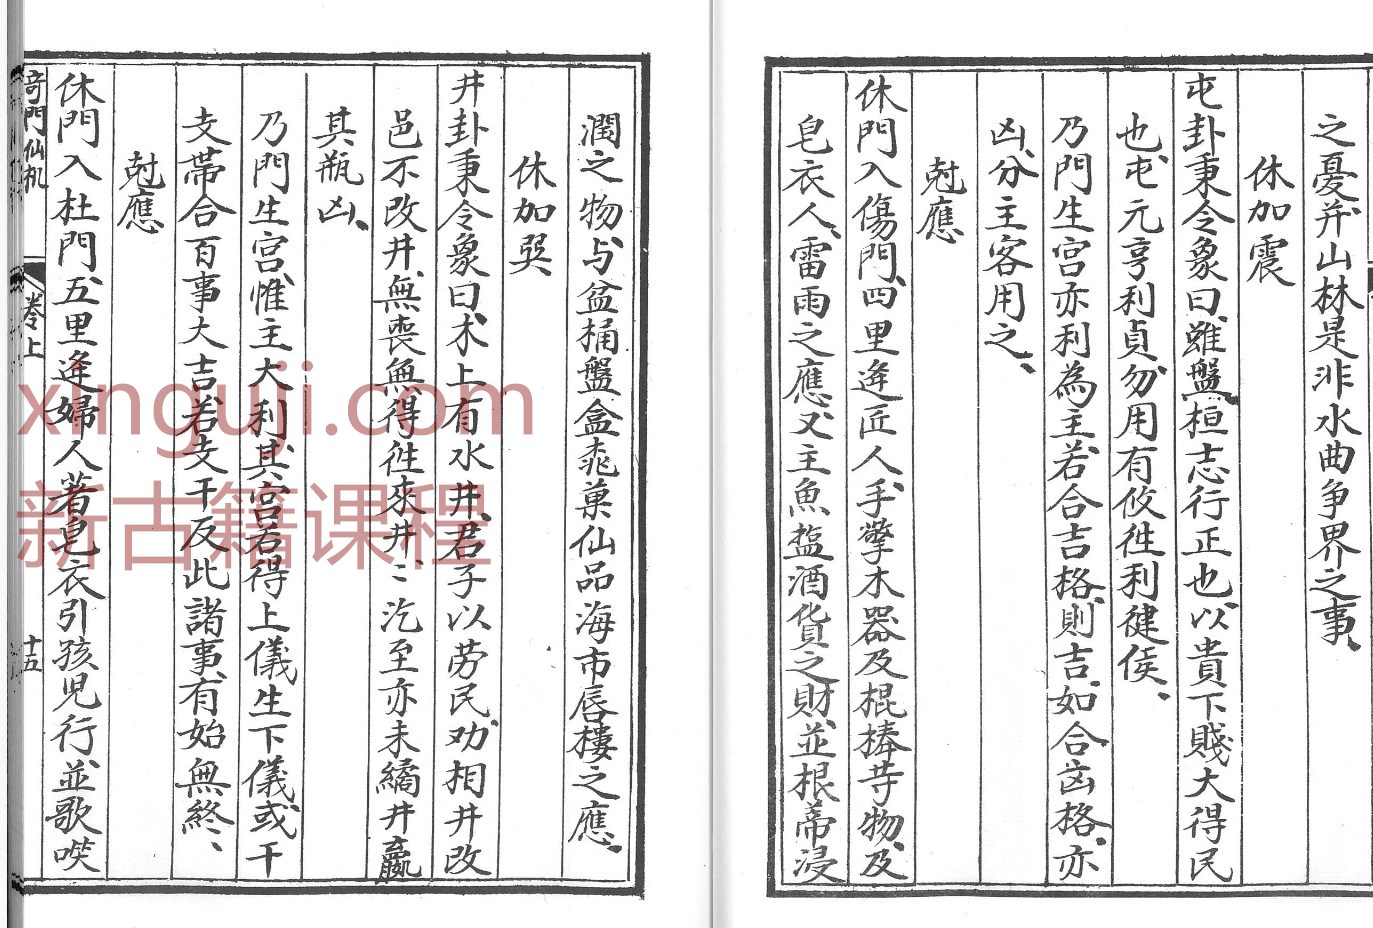 之憂并山林是非水曲争界之事、
休加震
屯卦秉令象曰、雖盤桓志行正也、以貴下賤大得民
也、屯、元亨利貞勿用有攸徃利健侯、
乃門生宮亦利為主、若合吉格、則吉、如合凶格、亦
凶、分主客用之、
尅應
休門入傷門、四里逄匠人、手擎木器及棍棒等物、及
皂衣人、雷雨之應、又主魚塩酒貨之財、並根蒂浸
潤之物、与盆桶盤盒菓仙品海市唇樓之應、
休加巽
井卦秉令象曰、木上有水井、君子以劳民劝相井改
邑不改井、無喪無得徃來井、〻汔至亦未繘井羸
其瓶凶、
乃門生宮、惟主大利其宮若得上儀生下儀或干
支帶合百事大吉、若支干反此諸事、有始無終、
尅應
休門入杜門、五里逄婦人著皂衣引孩児行、並歌
奇門仙机
卷上
十五
xinguji.com
新古籍课程